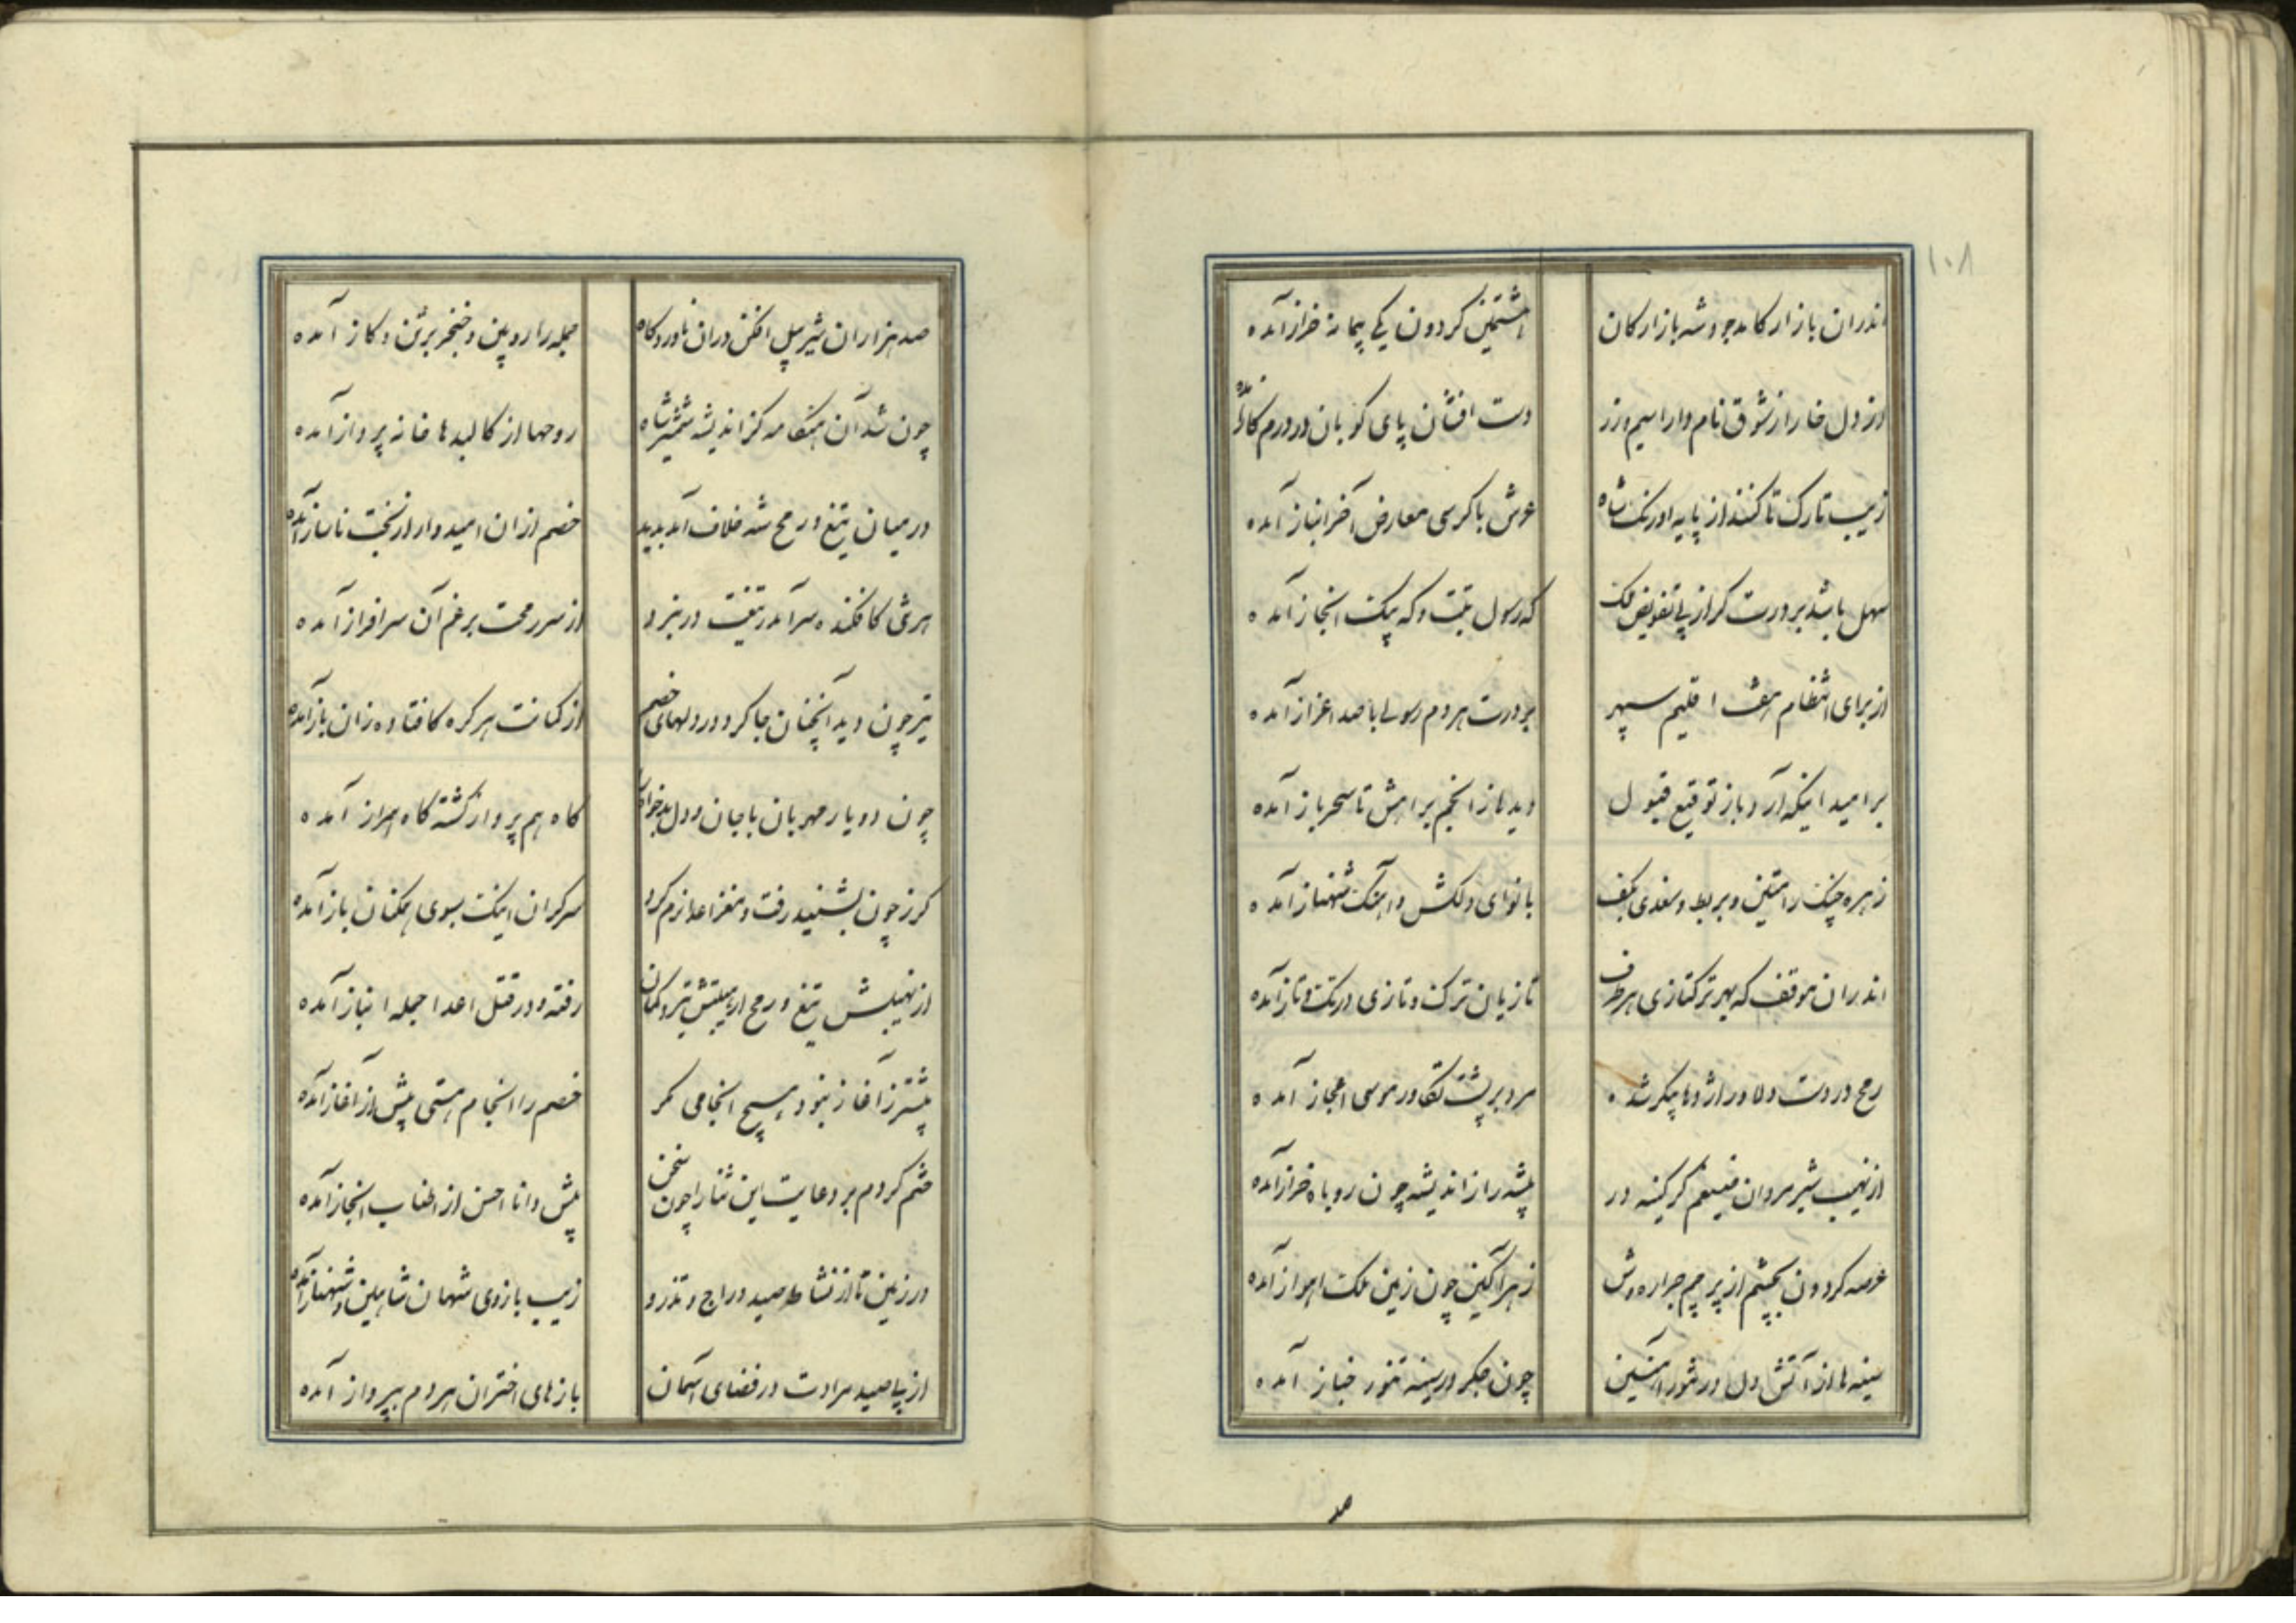 ۱۰۸
اندران بازار کامد جودشه بازارکان
مشتملین کردون یکی پیمانه خراز آمده
از دل خارا ز شوق نام دارا سیم و زر
دست افشان پای کوبان در درم کا آمده
زیب تارک تا کنند از پایه اورنک شاه
عرش با کرسی معارض آخر انباز آمده
سهل باشد بر درت کر از پی تفویض ملک
که رسول تبت و که پیک انجاز آمده
از برای انتظام هفت اقلیم سپهر
بر درت هر دم رسولی با صد اعزاز آمده
بر امید اینکه آرد باز توقیع قبول
دیدها ز انجم براهش تا سحر باز آمده
زهره چنک رامتین و بربط و سغدی بکف
با نوای دلکش و آهنک شهناز آمده
اندران موقف که بهر ترکتازی هر طرف
تازیان ترک و تازی در تک و تاز آمده
رمح در دست دلاور اژدها پیکر شده
مرد بر پشت تکاور موسی اعجاز آمده
از نهیب شیر مردان ضیغم کر کینه ور
بیشه راز اندیشه چون روباه خراز آمده
عرصه کردون بچشم از پرچم جراره وش
زهر آکین چون زمین ملک اهواز آمده
سینه ها از آتش دل در تنور آهنین
چون جکر در سینه تنور خباز آمده
صد
صد هزاران شیر پیل افکن دران ناوردکاه
جمله را روبین و خنجر برتن و کاز آمده
چون شد آن هنکامه کز اندیشه شمشیر شاه
روحها از کالبدها خانه پرداز آمده
در میان تیغ و رمح شه خلاف آمد پدید
خصم ازان امیدوار از بخت ناساز آمده
هر تنی کافکنده سر آمد ز تیغت در نبرد
از سر رمحت برغم آن سرافراز آمده
تیر چون دید آنچنان جا کرد در دلهای خصم
از کمانت هر کره کافتاده زان باز آمده
چون دو یار مهربان با جان و دل بدخواه
کاه هم پرواز کشته کاه همراز آمده
کرز چون بشنید رفت و مغز اعدا نرم کرد
سرکران اینک بسوی همکنان باز آمده
از نهیبش تیغ و رمح از هیبتش تیر و کمان
رفته و در قتل اعدا جمله انباز آمده
پیشتر ز آغاز نبود هیچ انجامی مکر
خصم را انجام هستی پیش از آغاز آمده
ختم کردم بر دعایت این ثنا را چون سخن
پیش دانا احسن از اطناب انجاز آمده
در زمین تا از نشاط صید دراج و تذرو
زیب بازوی شهان شاهین و شهناز آمده
از پی صید مرادت در فضای آسمان
بازهای اختران هر دم بپرواز آمده